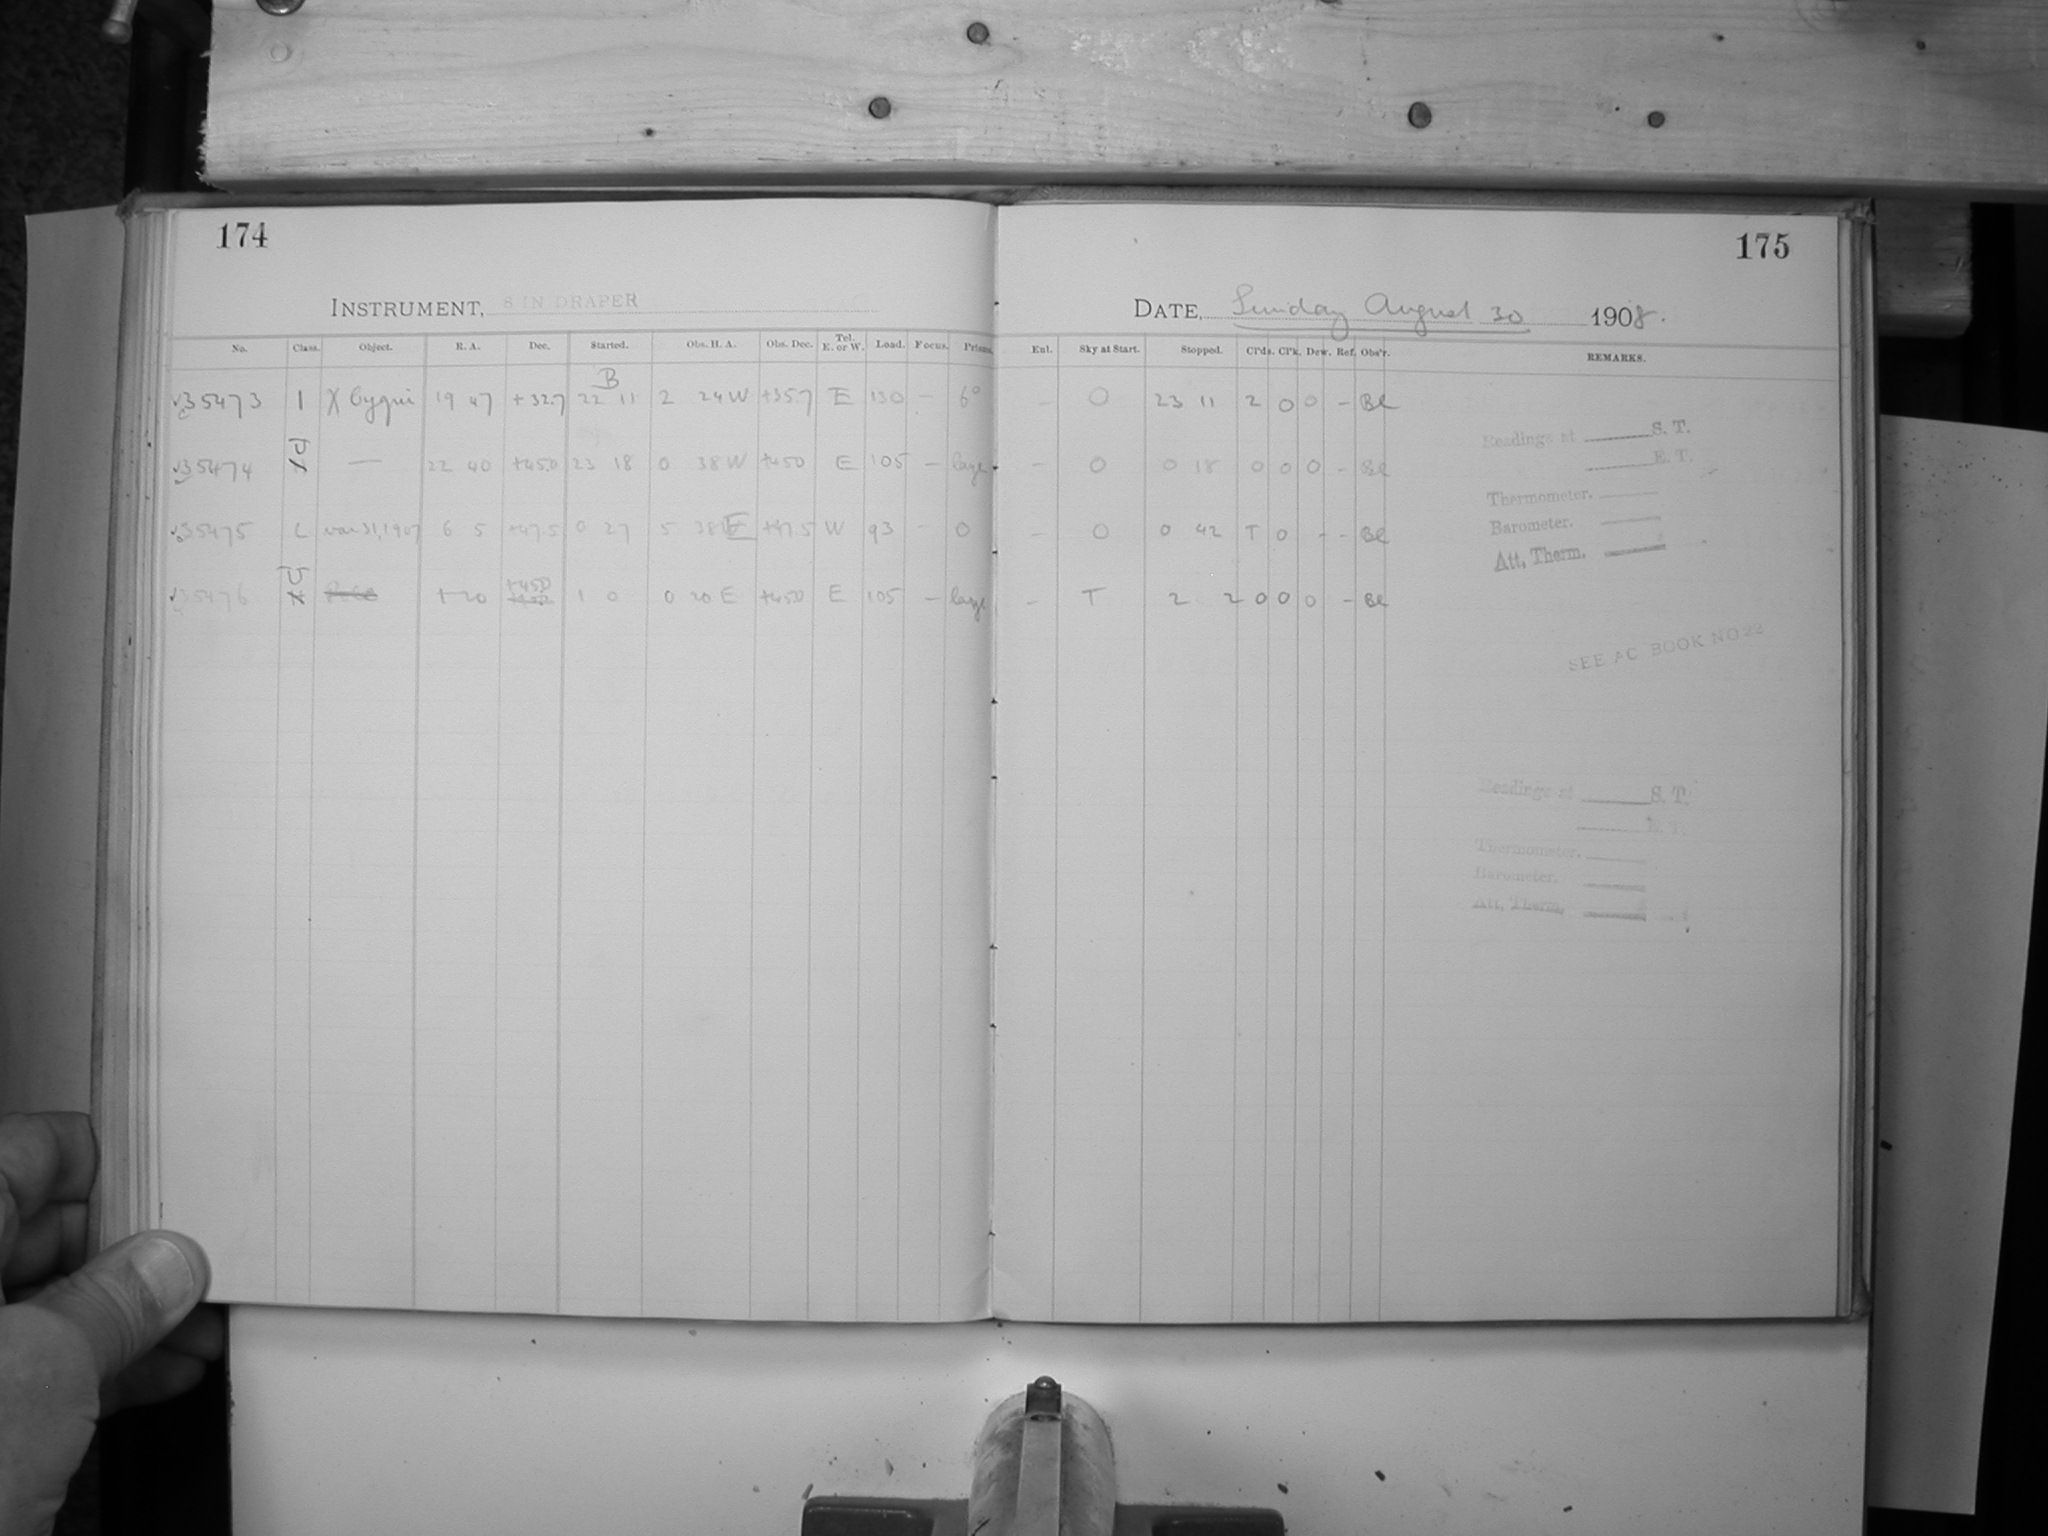 174
INSTRUMENT, 8 IN DRAPER
No. Class. Object. R. A. Dec. Started. Obs. H. A. Obs. Dec. Tel. E. or W. Load. Focus. Prisms.
B
35473 1 χ Cygni 19 47 +32.7 22 11 2 24 W +35.7 E 130 - 6°
35474 — 22 40 +45.0 23 18 0 38 W +45.0 E 105 - large
35475 L var 31, 1907 6 5 +47.5 0 27 5 38 E +47.5 W 93 - 0
+45.0
35476 1 20 1 0 0 20 E +45.0 E 105 - large
175
DATE, Sunday August 30 1908.
Enl. Sky at Start. Stopped. Cl'ds. Cl'k. Dew. Ref. Obs'r. REMARKS.
- 0 23 11 2 0 0 - Bl
- 0 0 18 0 0 0 - Bl
- 0 0 42 T 0 - - Bl
- T 2 2 0 0 0 - Bl
Readings at S. T.
E. T.
Thermometer.
Barometer.
Att, Therm.
SEE AC BOOK NO 22
Readings at S. T.
E. T.
Thermometer.
Barometer.
Att, Therm.